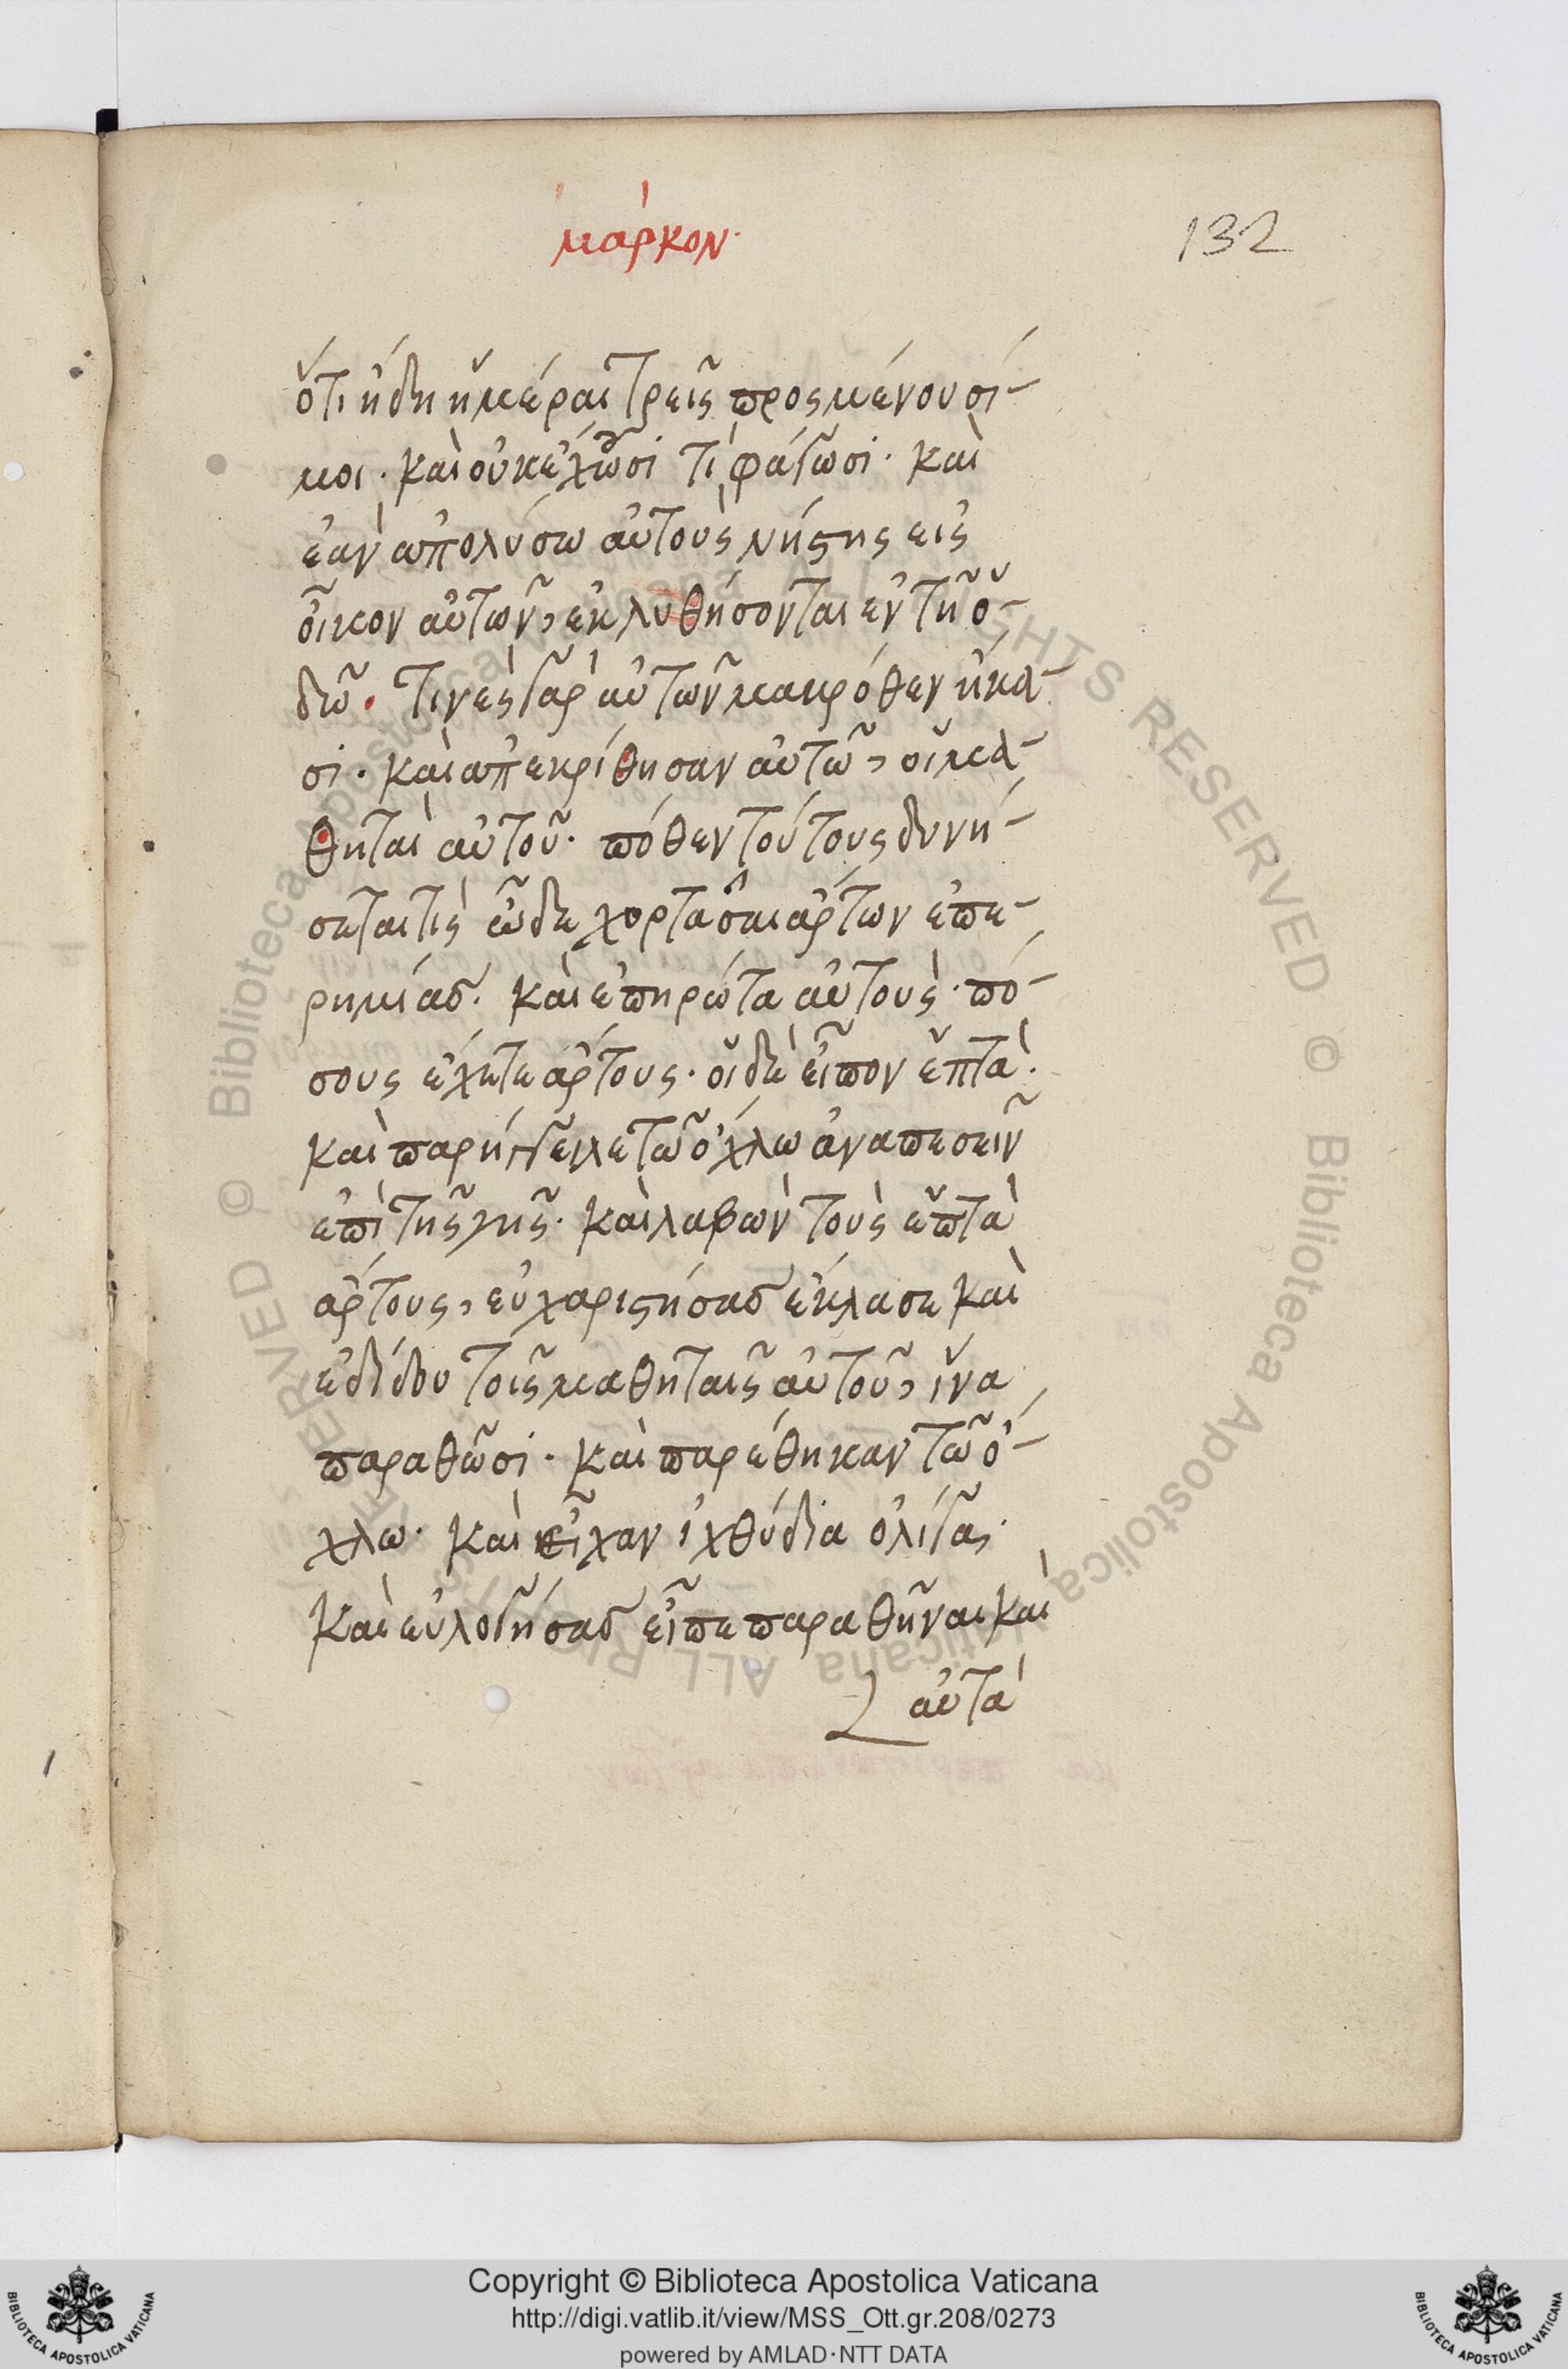 μάρκον·
132
ὅτι ἤδη ἡμέραι τρεῖς προςμένουσί
μοι· καὶ οὐκ ἔχωσι τί φάγωσι· καὶ
ἐὰν ἀπολύσω αὐτοὺς νήστης εἰς
οἶκον αὐτῶν, ἐκλυθήσονται ἐν τῆ ὁ-
δῶ· τινὲς γὰρ αὐτῶν μακρόθεν ἥκα-
σι· καὶ ἀπεκρίθησαν αὐτῶ, οἱ μα-
θηταὶ αὐτοῦ· πόθεν τούτους δυνή-
σεται τὶς ὧδε χορτάσαι ἄρτων ἐπε-
ρημίας· καὶ ἐπηρώτα αὐτοὺς· πό-
σους ἔχετε ἄρτους· οἱ δὲ εἶπον ἑπτά·
καὶ παρήγγειλε τῶ ὄχλω ἀναπεσεῖν
ἐπὶ τῆς γῆς· καὶ λαβὼν τοὺς ἑπτὰ
ἄρτους, εὐχαριστήσας ἔκλασε καὶ
ἐδίδου τοῖς μαθηταῖς αὐτοῦ, ἵνα
παραθῶσι· καὶ παρέθηκαν τῶ ὄ-
χλω· καὶ εἶχαν ἰχθύδια ὀλίγα·
καὶ εὐλογήσας εἶπε παραθῆναι καὶ
αὐτά
Copyright © Biblioteca Apostolica Vaticana
http://digi.vatlib.it/view/MSS_Ott.gr.208/0273
powered by AMLAD·NTT DATA
BIBLIOTECA APOSTOLICA VATICANA
BIBLIOTECA APOSTOLICA VATICANA